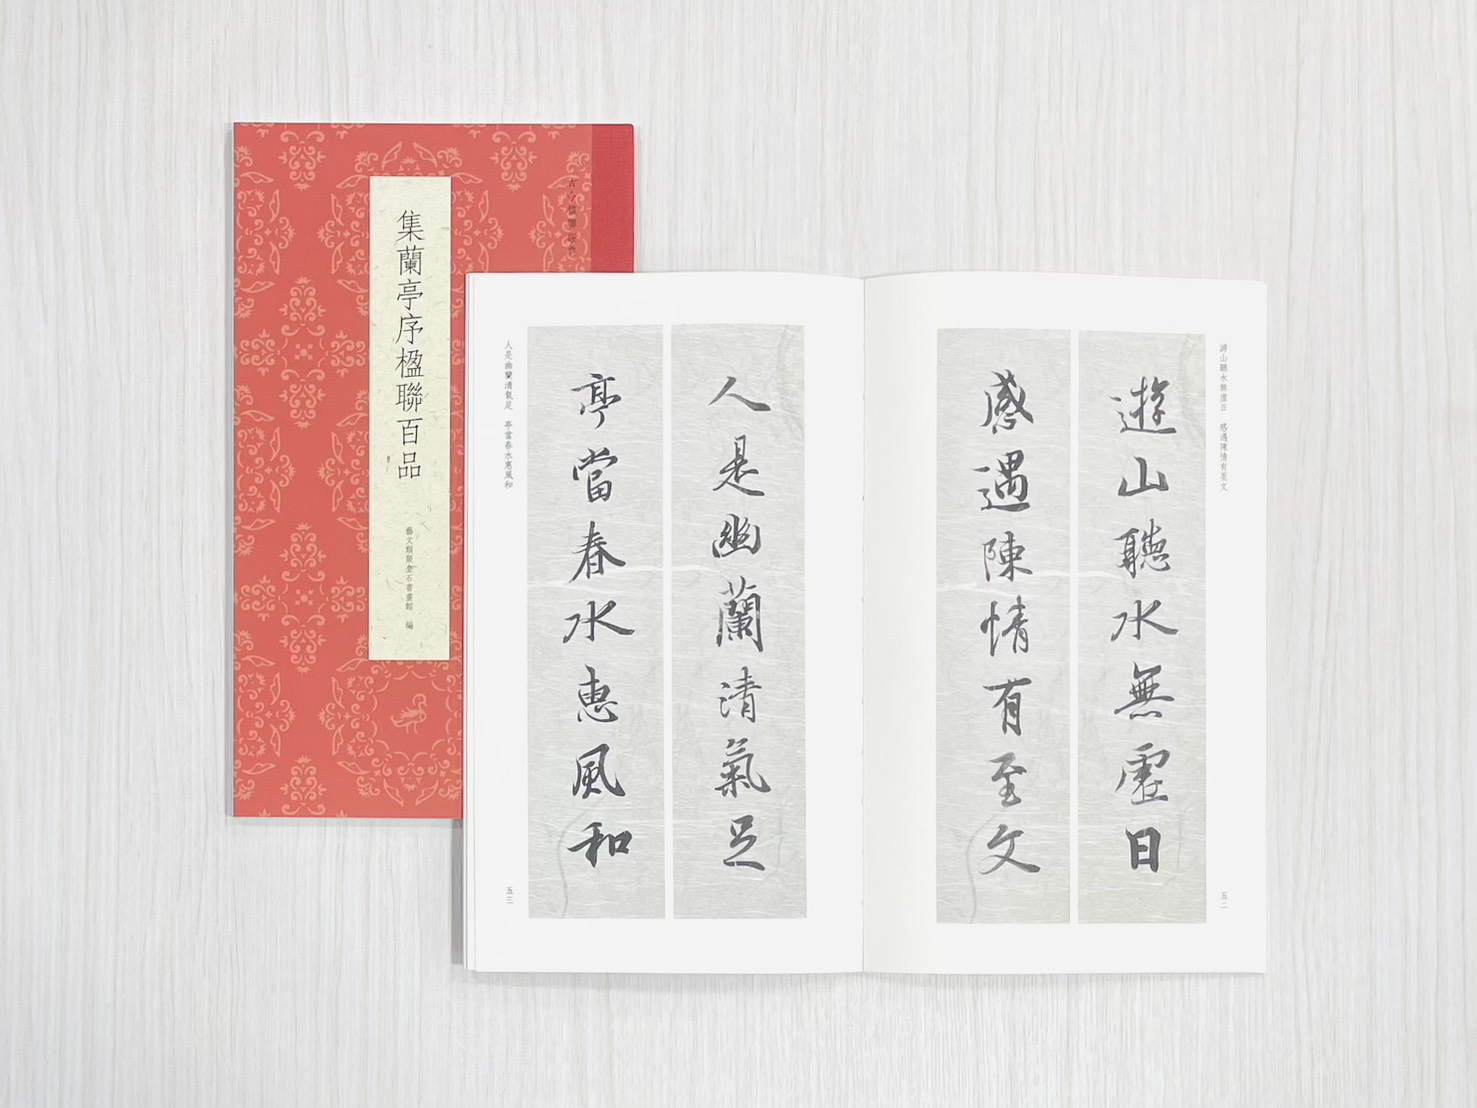 集蘭亭序楹聯百品
藝文類聚金石書畫館 編
游山聽水無虛日 感遇陳情有至文
遊山聽水無虛日
感遇陳情有至文
五二
人是幽蘭清氣足
亭當春水惠風和
人是幽蘭清氣足 亭當春水惠風和
五三